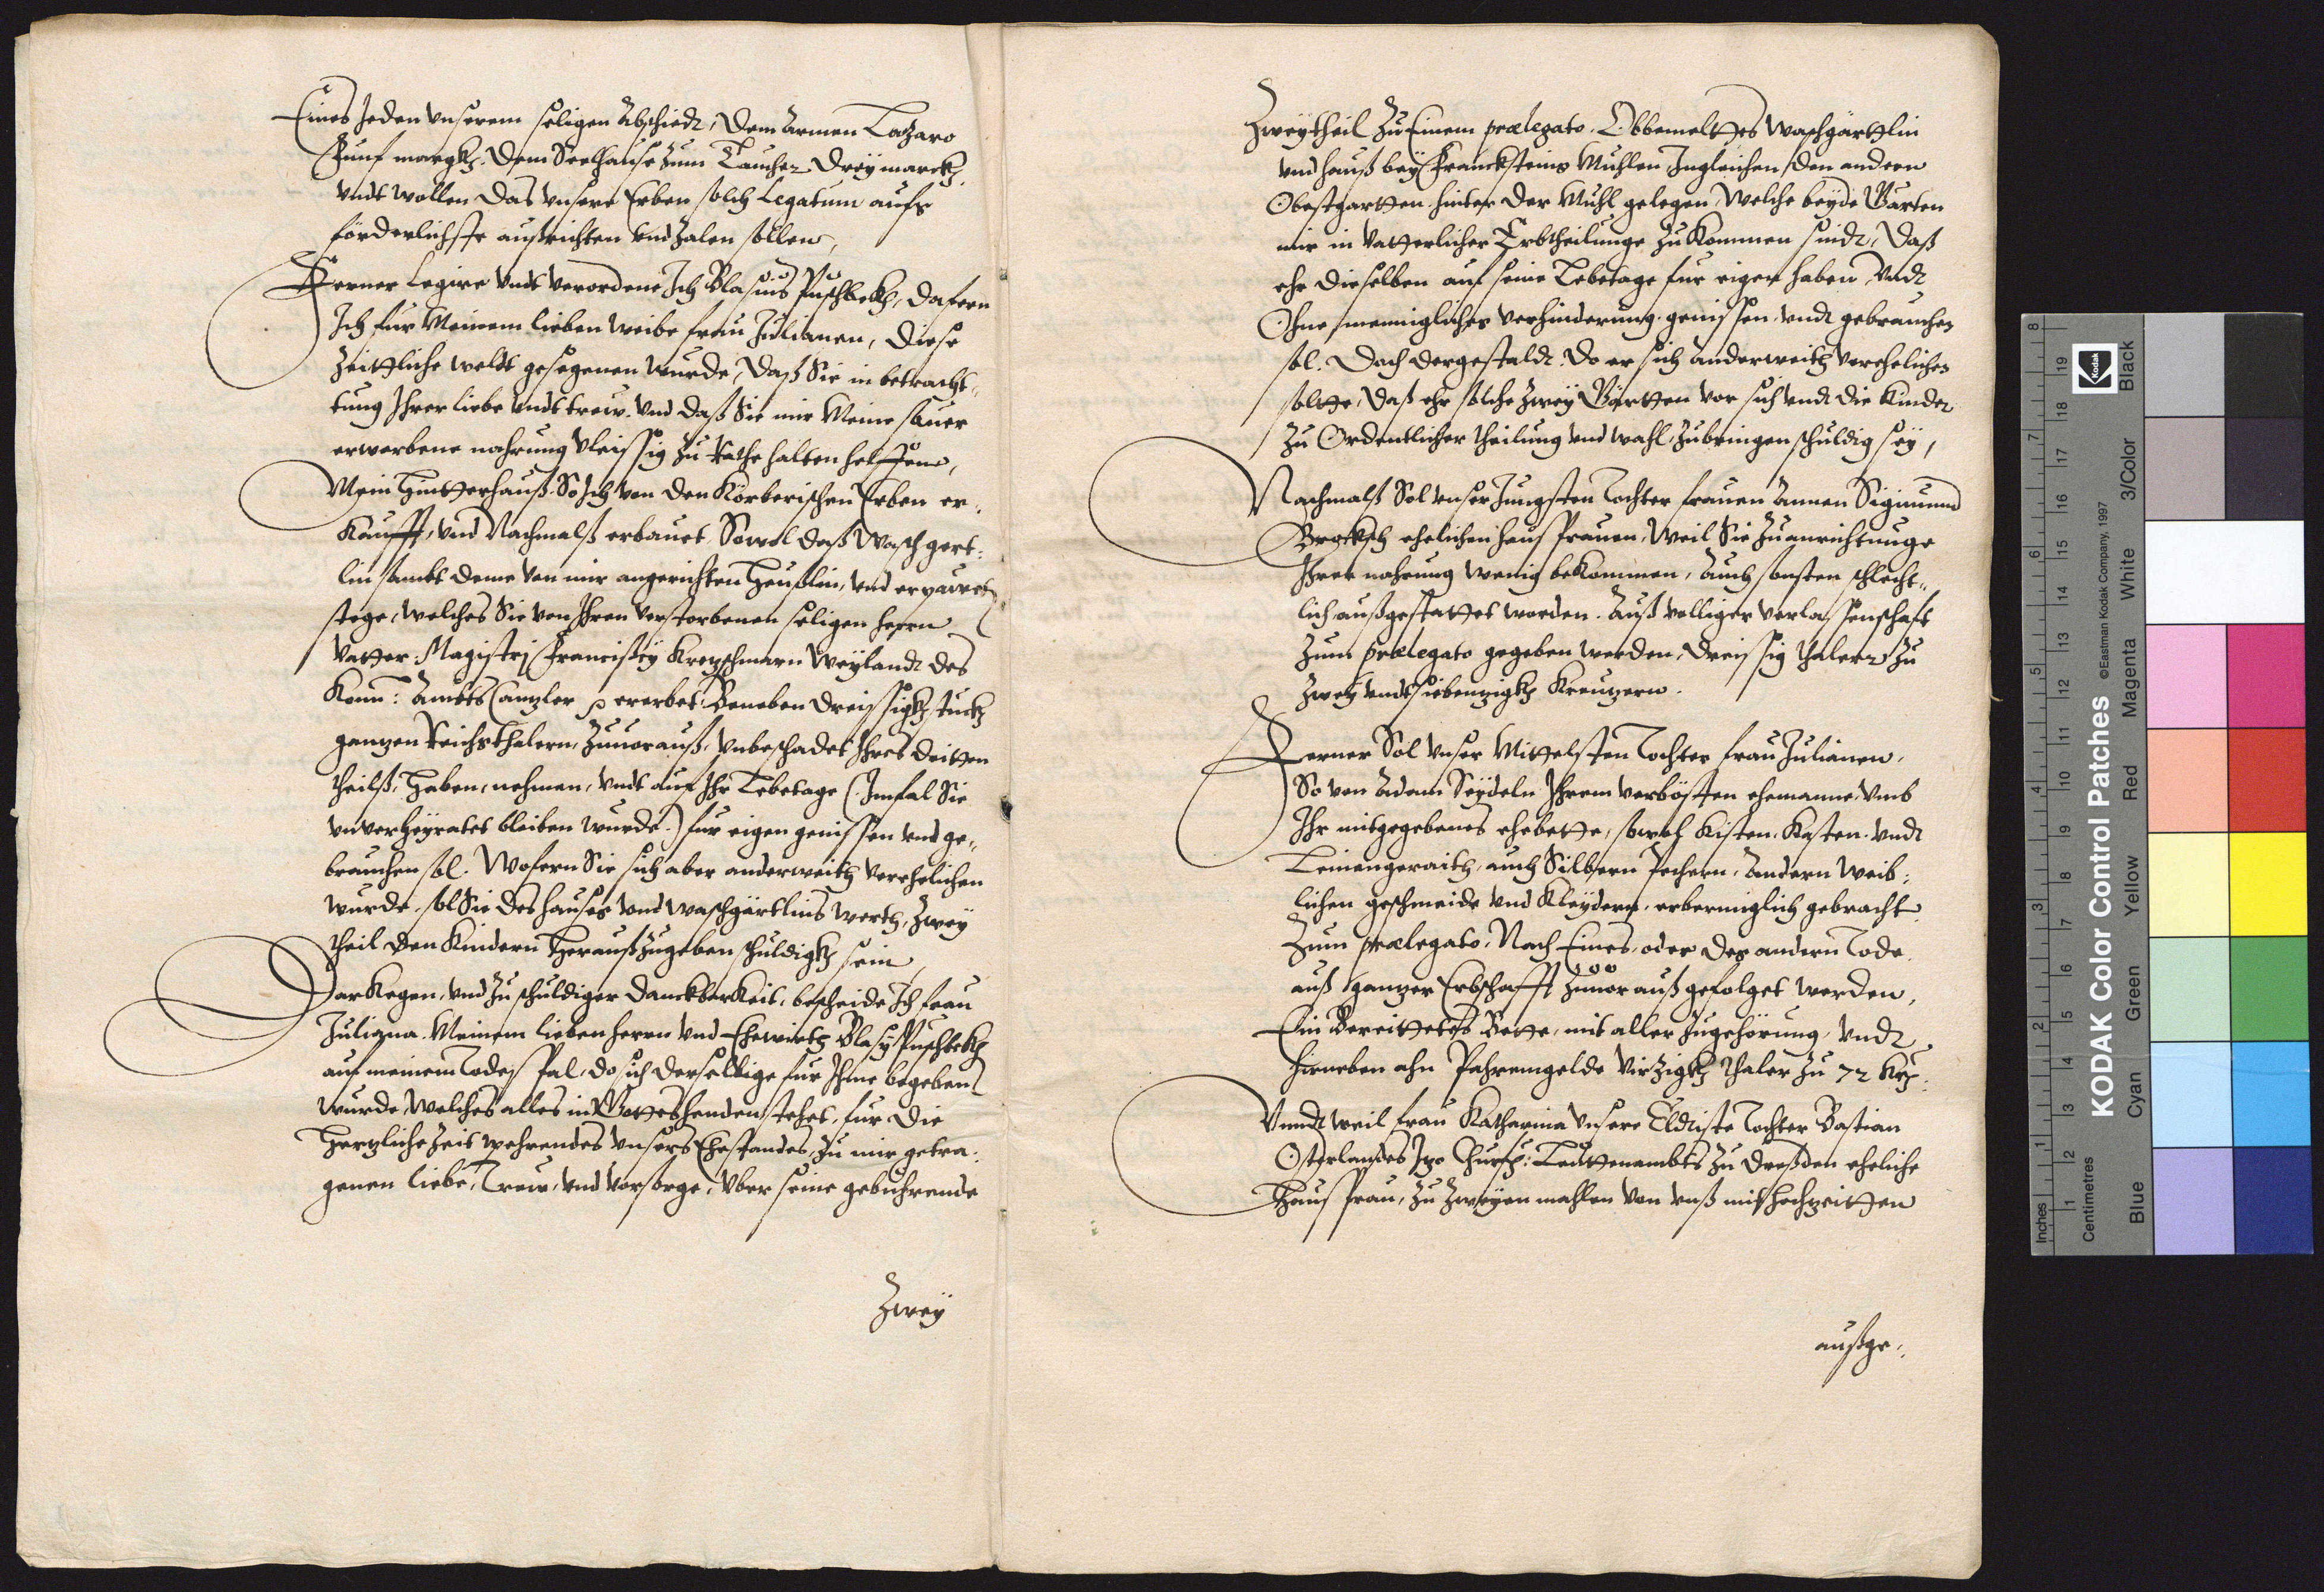 Eines Jeden vnserem seligen Abschiedt, Dem Armen Lazaro
Funf margkh. Dem Seelhause zum Taucher Drey marckh.
vndt wollen das vnsere Erben solch Legatum aufs
förderlichste außrichten vnd zalen sollen,
Ferner Legire vndt verordene Ich Blasius Puschbekh, dafern
Ich fur Meinem lieben weibe frau Julianen, diese
zeittliche weldt gesegenen wurde, Daß Sie in betracht-
tung Ihrer liebe vndt trew. Vnd daß Sie mir Meine sauer
erworbene nahrung vleissig zu rathe halten helffene,
Mein Hintterhauß. So Ich von den Körberischen Erben er-
kaufft, vnd Nachmalß erbauet. Sowol daß Waschgert-
lin sambt deme von mir angerichten Heußlin, vnd erpauete
stege, welches Sie von Ihren verstorbenen seligen herrn
Vatter Magistri Francissy Kretzschmarn Weylandt des
Konn: Ambts Canzler p ererbet. Beneben dreissigkh stuckh
gantzen Reichsthalern, Zuuorauß, vnbeschadet Ihres dritten
theilß, Haben, nehmen, vndt auf Ihr Lebetage (Imfal Sie
vnverheyratet bleiben wurde.) fur eigen genissen vnd ge-
brauchen sol. Wofern Sie sich aber anderweith verehelichen
wurde, sol Sie des hauses vnd waschgärtlins werth, Zwey
theil den Kindern herauß zugeben schuldigkh sein
Darkegen, vnd zu schuldiger danckbarkeit, bescheide Ich frau
Juliana. Meinem lieben herrn vnd Ehewirth Blasy Puschbekh
auf meinem todes fal, do sich derselbige fur Ihme begeben
wurde, welches alles in Gottes henden stehet, fur die
hertzliche zeit wehrendes vnsers Ehestandes, zu mir getra-
genen liebe, Trew, vnd vorsorge, vber seine gebuhrende
Zwey
Zwey theil zu Einem prælegato. Obbemeltes waschgärtlin
vnd hauß bey Francksteins Muhlen Ingleichen den andern
Obestgartten hinter der Muhl gelegen, Welche beyde Garten
mir in Vatterlicher Erbtheilunge zukommen sindt, Daß
ehr dieselben auf seine Lebetage fur eigen haben vndt
Ohne mennigliches verhinderung, genissen vndt gebrauchen
sol. Doch dergestaldt. Do er sich anderweith verehelichen
soltte, Daß ehr solche zwey Gartten vor sich vndt die Kinder
zu Ordentlicher theilung vnd wahl zubringen schuldig sey,
Nachmalß Sol vnser Jungsten tochter frauen Annen Sigmund
ehelichen hausfrauen, Weil Sie zu anrichtunge
Ihrer nahrung wenig bekommen, Auch sonsten schlecht-
lich außgestattet worden. Auß volliger verlassenschaft
Zum prælegato gegeben werden, dreissig thaler zu
zwey vndt siebenzigkh Kreuzern.
Ferner Sol vnser Mittelsten tochter frau Julianen,
So von Adam Seydeln Ihrem verbösten ehemanne, vmb
Ihr mitgegebenes ehebette, sowol Kisten, Kasten vndt
Leinengeraith, auch Silbern Pechern, Andern Weib-
lichen geschmeide vnd Kleydern, erbermiglich gebracht
Zum prælegato, Nach Eines, oder des andern tode.
auß ganzer Erbschafft zuuor auß gefolget werden,
Ein Bereittetes Bette, mit aller zugehörung, vndt
hirneben ahn Pahremgelde virzigkh thaler zu 72 Krz:
Vnndt weil frau Katharina vnsere Eldiste tochter Bastian
Osterlandes Jzo Churf: Leuttenambts zu Dreßden eheliche
Hausfrau, zu zweyen mahlen von vnß mit hochzeitten
außge-